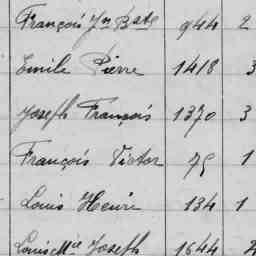 François Jn Bste 944 2
Emile Pierre 1418 3
Joseph François 1370 3
François Victor 75 1
Louis Henri 134 1
Louis Mie Joseph 1644 2